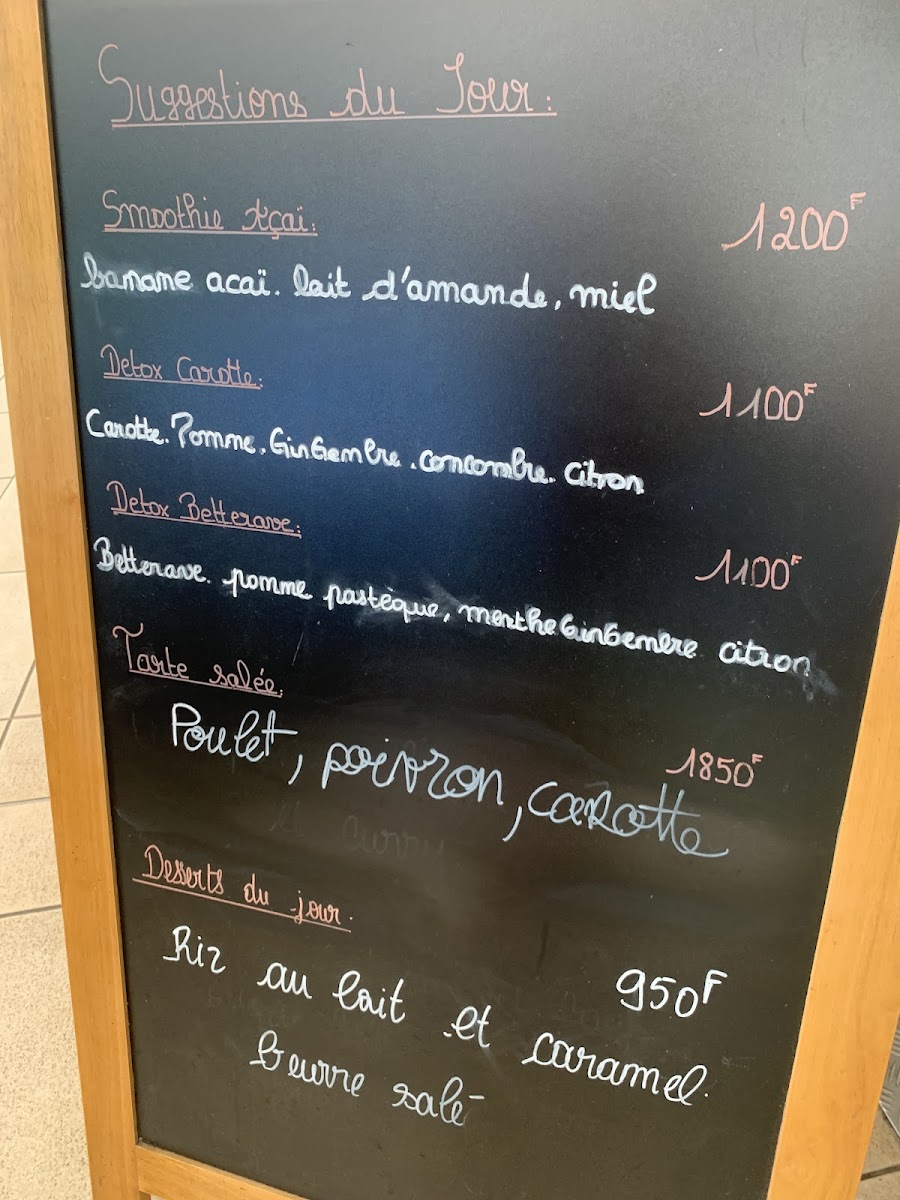 Suggestions du Jour:
Smoothie Açaï: 1200F
banane acaï. lait d'amande, miel
Detox Carotte: 1100F
Carotte. Pomme. Gingembre. concombre. citron
Detox Betterave: 1100F
Betterave. pomme pastèque, menthe Gingembre citron
Tarte salée: 1850F
Poulet, poivron, carotte
Desserts du jour.
Riz au lait et caramel. 950F
beurre salé